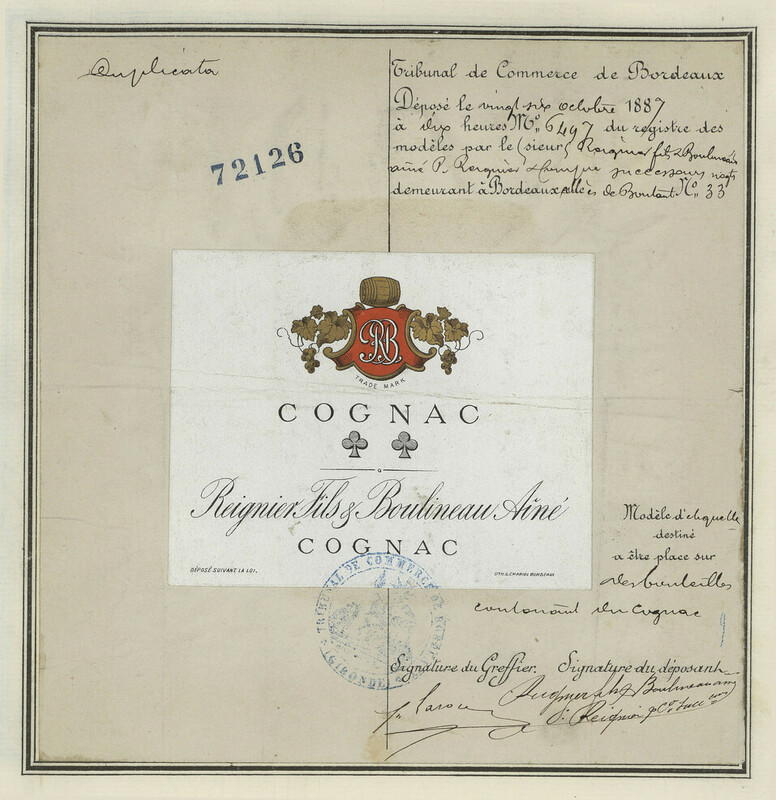 Duplicata
72126
Tribunal de Commerce de Bordeaux
Déposé le vingt six octobre 1887
à dix heures Nº 6497 du registre des
modèles par le (sieur) Reignier fils & Boulineau
aîné P. Reignier & successeurs négts
demeurant à Bordeaux allées de Boutaut Nº 33
RB
TRADE MARK
COGNAC
Reignier Fils & Boulineau Aîné
COGNAC
DÉPOSÉ SUIVANT LA LOI.
LITH. G. CHARIOL BORDEAUX
Modèle d'etiquette
destiné
a être place sur
des bouteilles
contenant du Cognac
TRIBUNAL DE COMMERCE DE BORDEAUX
(GIRONDE)
Signature du Greffier.
Signature du déposant
Reignier fils & Boulineau aîné
P. Reignier & Co succ